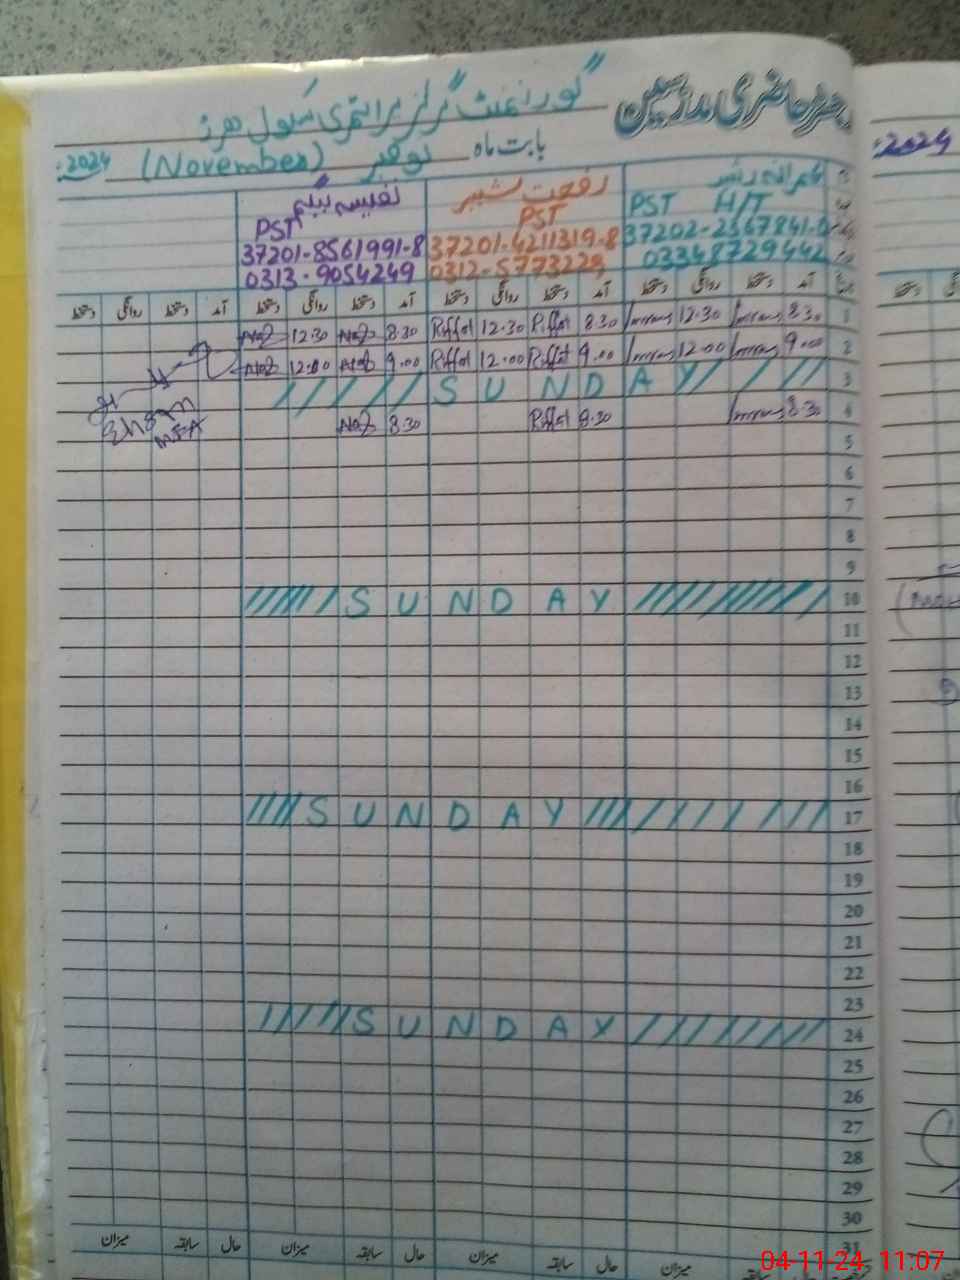 رجسٹر حاضری مدرسین گورنمنٹ گرلز پرائمری سکول
بابت ماہ نومبر (November) 2024
نفیسہ بیگم
PST
37201-8561991-8
0313-9054249
رفعت شبیر
PST
37201-4211319-8
0312-5773229
PST H/T
37202-2567841-
03348729442
آمد دستخط روانگی دستخط آمد دستخط روانگی دستخط آمد دستخط روانگی دستخط آمد دستخط روانگی دستخط
1 8.30 12.30 8.30 Riffat 12.30 Riffat 8.30 12.30
2 9.00 12.00 9.00 Riffat 12.00 Riffat 9.00 12.00
3 SUNDAY
4 8.30 8.30 Riffat 8.30
MEA
5
6
7
8
9
10 SUNDAY
11
12
13
14
15
16
17 SUNDAY
18
19
20
21
22
23
24 SUNDAY
25
26
27
28
29
30
31
میزان حال سابقہ میزان حال سابقہ میزان حال سابقہ میزان
2024
04-11-24 11:07